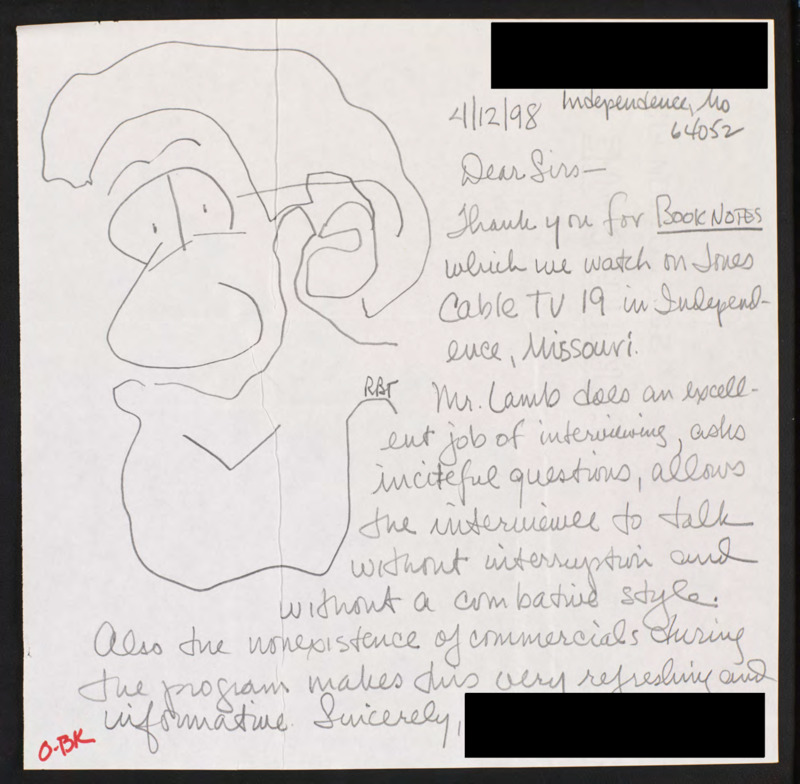 4/12/98 Independence, Mo
64052
Dear Sirs—
Thank you for BOOKNOTES
which we watch on Jones
Cable TV 19 in Independ-
ence, Missouri.
RBT
Mr. Lamb does an excell-
ent job of interviewing, asks
inciteful questions, allows
the interviewee to talk
without interruption and
without a combative style.
Also the nonexistence of commercials during
the program makes this very refreshing and
informative. Sincerely,
O-BK